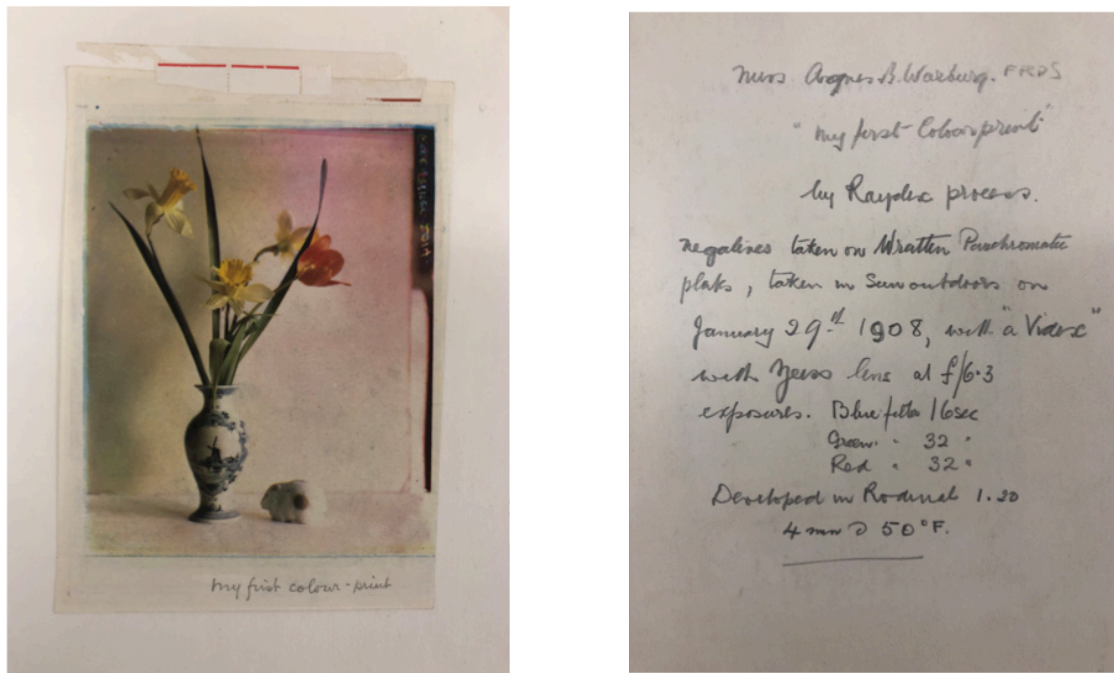 my first colour-print
Miss Agnes B. Warburg. FRPS
"my first Colour print"
by Raydex process.
negatives taken on Wratten Panchromatic
plates, taken in Sun outdoors on
January 29th 1908, with "a Videx"
with Zeiss lens at f/6.3
exposures. Blue filter 16sec
Green " 32 "
Red " 32 "
Developed in Rodinal 1.20
4 min @ 50°F.